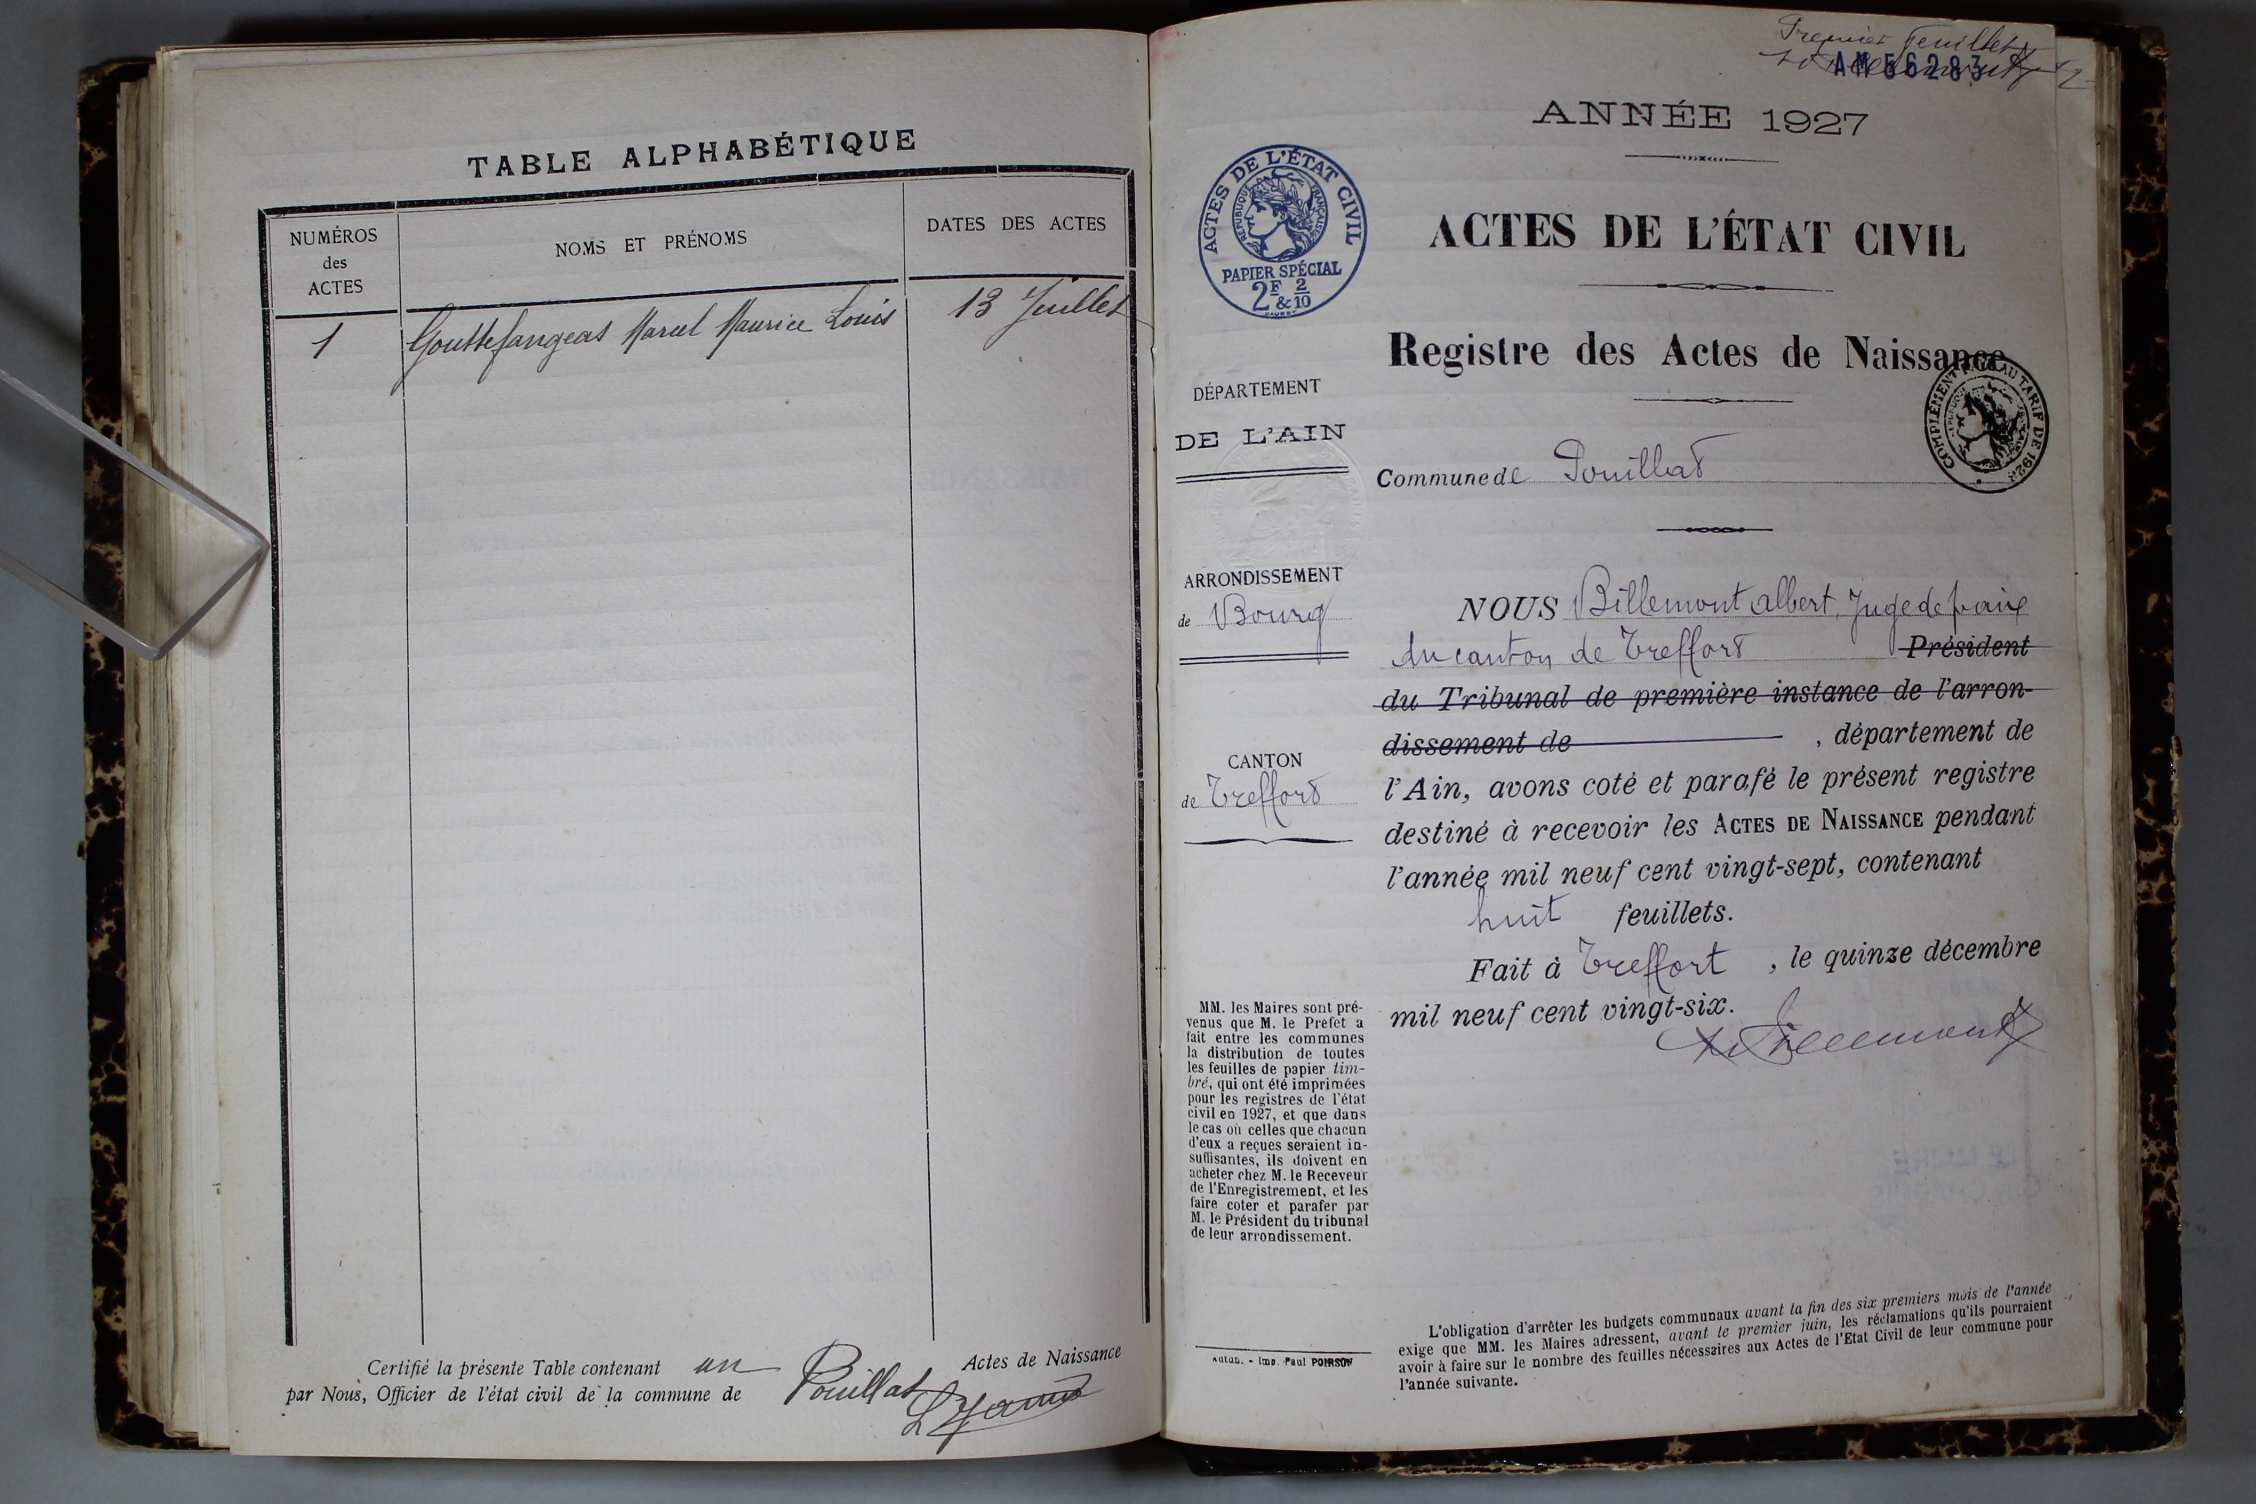 TABLE ALPHABÉTIQUE
NUMÉROS
des
ACTES
NOMS ET PRÉNOMS
DATES DES ACTES
1 Gouttefangeas Marcel Maurice Louis 13 Juillet
Certifié la présente Table contenant un Actes de Naissance
par Nous, Officier de l'état civil de la commune de Pouillat
Premier feuillet
AM 56283
ANNÉE 1927
ACTES DE L'ÉTAT CIVIL
RÉPUBLIQUE FRANÇAISE
PAPIER SPÉCIAL
2F & 2/10
ACTES DE L'ÉTAT CIVIL
Registre des Actes de Naissance
COMPLÉMENT PAYÉ AU TARIF DE 192
DÉPARTEMENT
DE L'AIN
Commune de Pouillat
ARRONDISSEMENT
de Bourg
CANTON
de Treffort
NOUS Billemont Albert, Juge de paix
du canton de Treffort Président
du Tribunal de première instance de l'arron-
dissement de , département de
l'Ain, avons coté et parafé le présent registre
destiné à recevoir les ACTES DE NAISSANCE pendant
l'année mil neuf cent vingt-sept, contenant
huit feuillets.
Fait à Treffort , le quinze décembre
mil neuf cent vingt-six.
Billemont
MM. les Maires sont pré-
venus que M. le Prefet a
fait entre les communes
la distribution de toutes
les feuilles de papier tim-
bré, qui ont été imprimées
pour les registres de l'état
civil en 1927, et que dans
le cas où celles que chacun
d'eux a reçues seraient in-
suffisantes, ils doivent en
acheter chez M. le Receveur
de l'Enregistrement, et les
faire coter et parafer par
M. le Président du tribunal
de leur arrondissement.
Autun. - Imp. Paul POIRSON
L'obligation d'arrêter les budgets communaux avant la fin des six premiers mois de l'année
exige que MM. les Maires adressent, avant le premier juin, les réclamations qu'ils pourraient
avoir à faire sur le nombre des feuilles nécessaires aux Actes de l'Etat Civil de leur commune pour
l'année suivante.